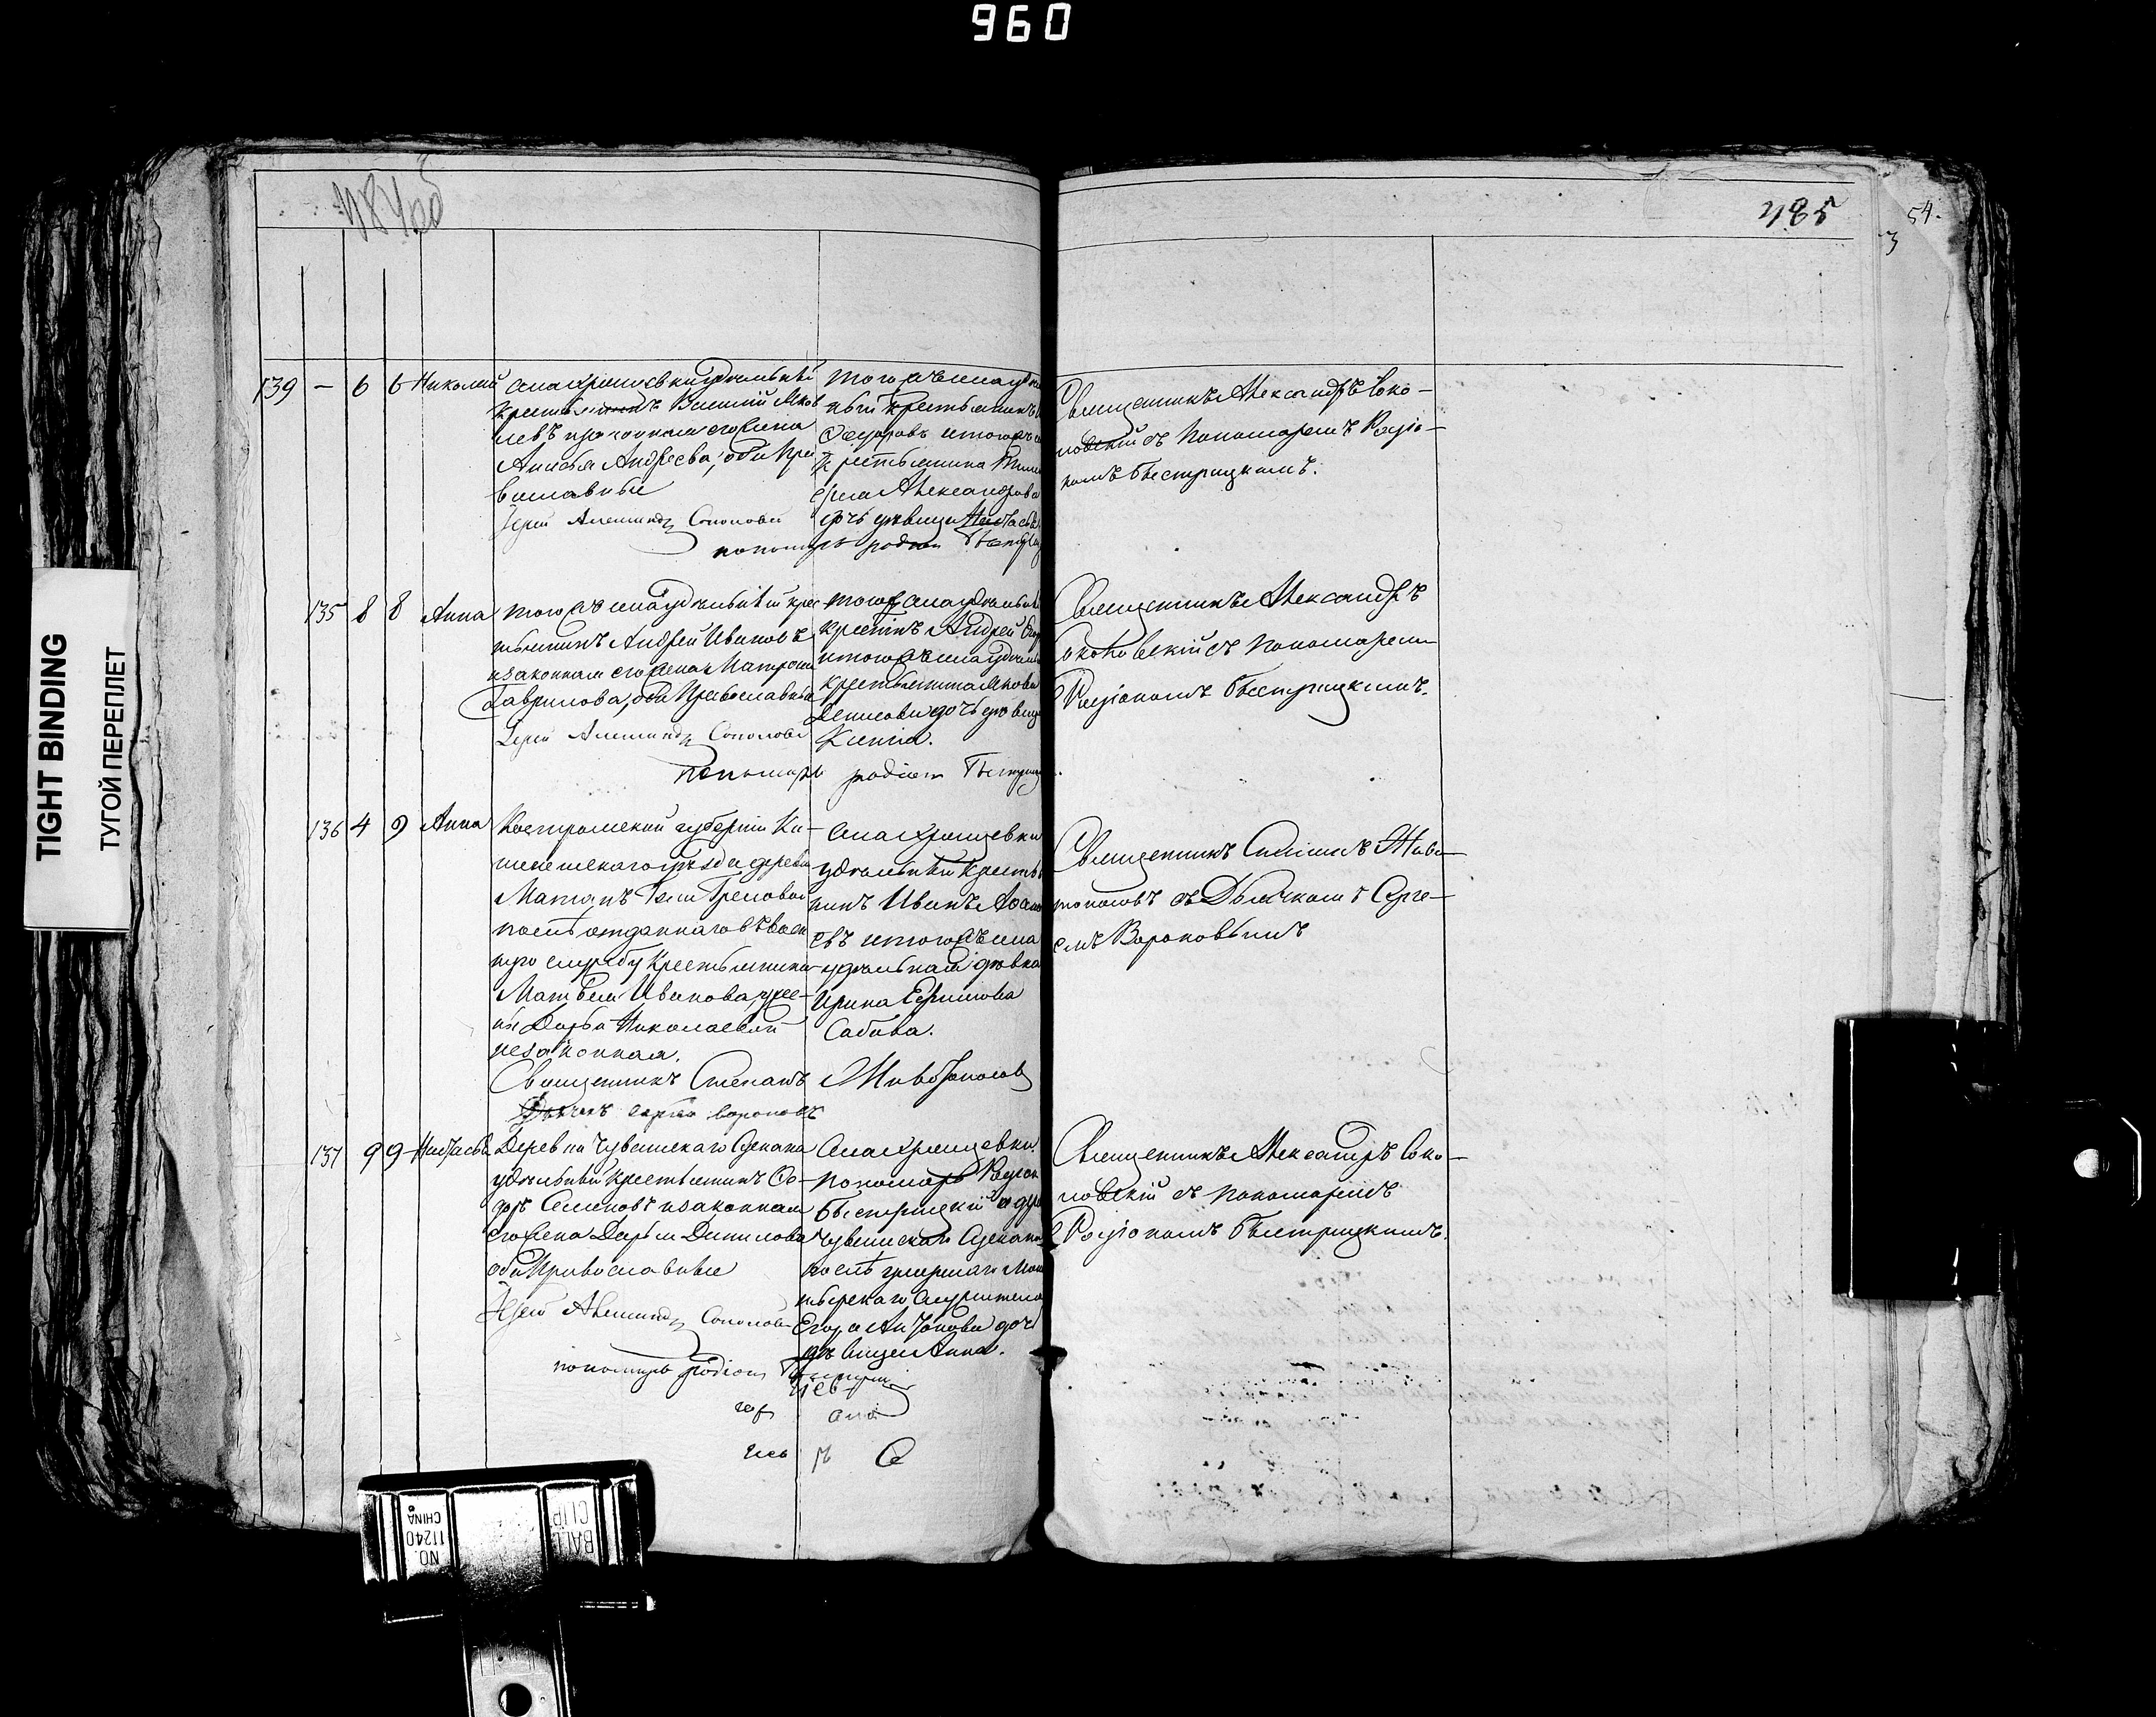 960
484об
485
54.
3
TIGHT BINDING
ТУГОЙ ПЕРЕПЛЕТ
139 – 6 6 Николай
села Хрящевки удѣльный
крестьянинъ Василий Яков
левъ и законная его жена
Анисья Андреева, оба Пра
вославные
Іерей Александръ Соколовск
пономарь родион Быстриц
того ж села удѣль
ный крестьянинъ
Ѳедоровъ и того ж с
крестьянина
Александрова
дочь девица Настасья
Священникъ Александръ Соко–
ловскій съ Пономаремъ Родіо–
номъ Быстрицкимъ.
135 8 8 Анна
того ж села удѣльный крес
тьянинъ Андрей Ивановъ
и законная его жена Матрона
Гаврилова, оба Православные
Іерей Александръ Соколовск
пономарь родион Быстриц
того ж села удѣльный
крестьнъ Андрей
и того ж села удѣльн
крестьянина Якова
Денисова дочь девица
Ксения.
Священникъ Александръ
Соколовскій съ Пономарем
Родіономъ Быстрицкимъ.
136 4 9 Анна
Костромской губерніи Ки–
нешемскаго уѣзда деревни
послѣ отданнаго въ воен
ную службу Крестьянина
Матвея Иванова, у жены
Дарьи Николаевой
незаконная.
Священникъ Степанъ Живоносов
Дьячекъ сергѣй вороновъ
села Хрящевки
удѣльный крестья
нинъ Иванъ
евъ и того ж села
удѣльная дѣвка
Ирина Ефимова
Сабова.
съ Дьячкомъ Серге–
емъ Вороновымъ
137 9 9 Настасья
Деревни Чувашскаго Сускана
удѣльный крестьянинъ Ѳе–
доръ Семеновъ и законная
его жена Дарья Данилова
оба Православные
Іерей Александръ Соколовск
пономарь родіон Быстриц
Села Хрящевки
пономарь Родіон
Быстрицкій и дер
Чувашскаго Сускана
послѣ умершаго
служителя
Егора Антонова дочь
дѣвица Анна.
Священникъ Александръ Соко–
ловскій съ пономаремъ
Родіономъ Быстрицкимъ.